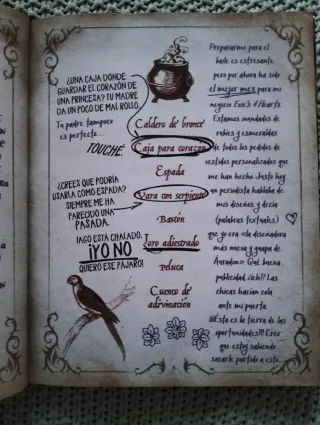 ¿UNA CAJA DONDE
GUARDAR EL CORAZÓN DE
UNA PRINCESA? TU MADRE
DA UN POCO DE MAL ROLLO.
Tu padre tampoco
es perfecto...
TOUCHÉ.
¿CREES QUE PODRÍA
USARLA COMO ESPADA?
SIEMPRE ME HA
PARECIDO UNA
PASADA.
IAGO ESTÁ CHALADO.
¡YO NO
QUIERO ESE PÁJARO!
Caldero de bronce
Caja para corazón
Espada
Vara con serpiente
Bastón
Loro adiestrado
Peluca
Cuenco de
adivinación
Prepararme para el
baile es estresante,
pero por ahora ha sido
el mejor mes para mi
negocio Evie's 4 Hearts.
Estamos inundados de
rubíes y esmeraldas
de todos los pedidos de
vestidos personalizados que
me han hecho. ¡Justo hoy
un periodista hablaba de
mis diseños y decía
(palabras textuales)
que yo era «la diseñadora
más nueva y guapa de
Auradon»! Qué buena
publicidad
chicas hacían cola
ante mi puerta.
¡¡¡Esta es la tierra de las
oportunidades!!! Creo
que estoy sabiendo
sacarle partido a esto...